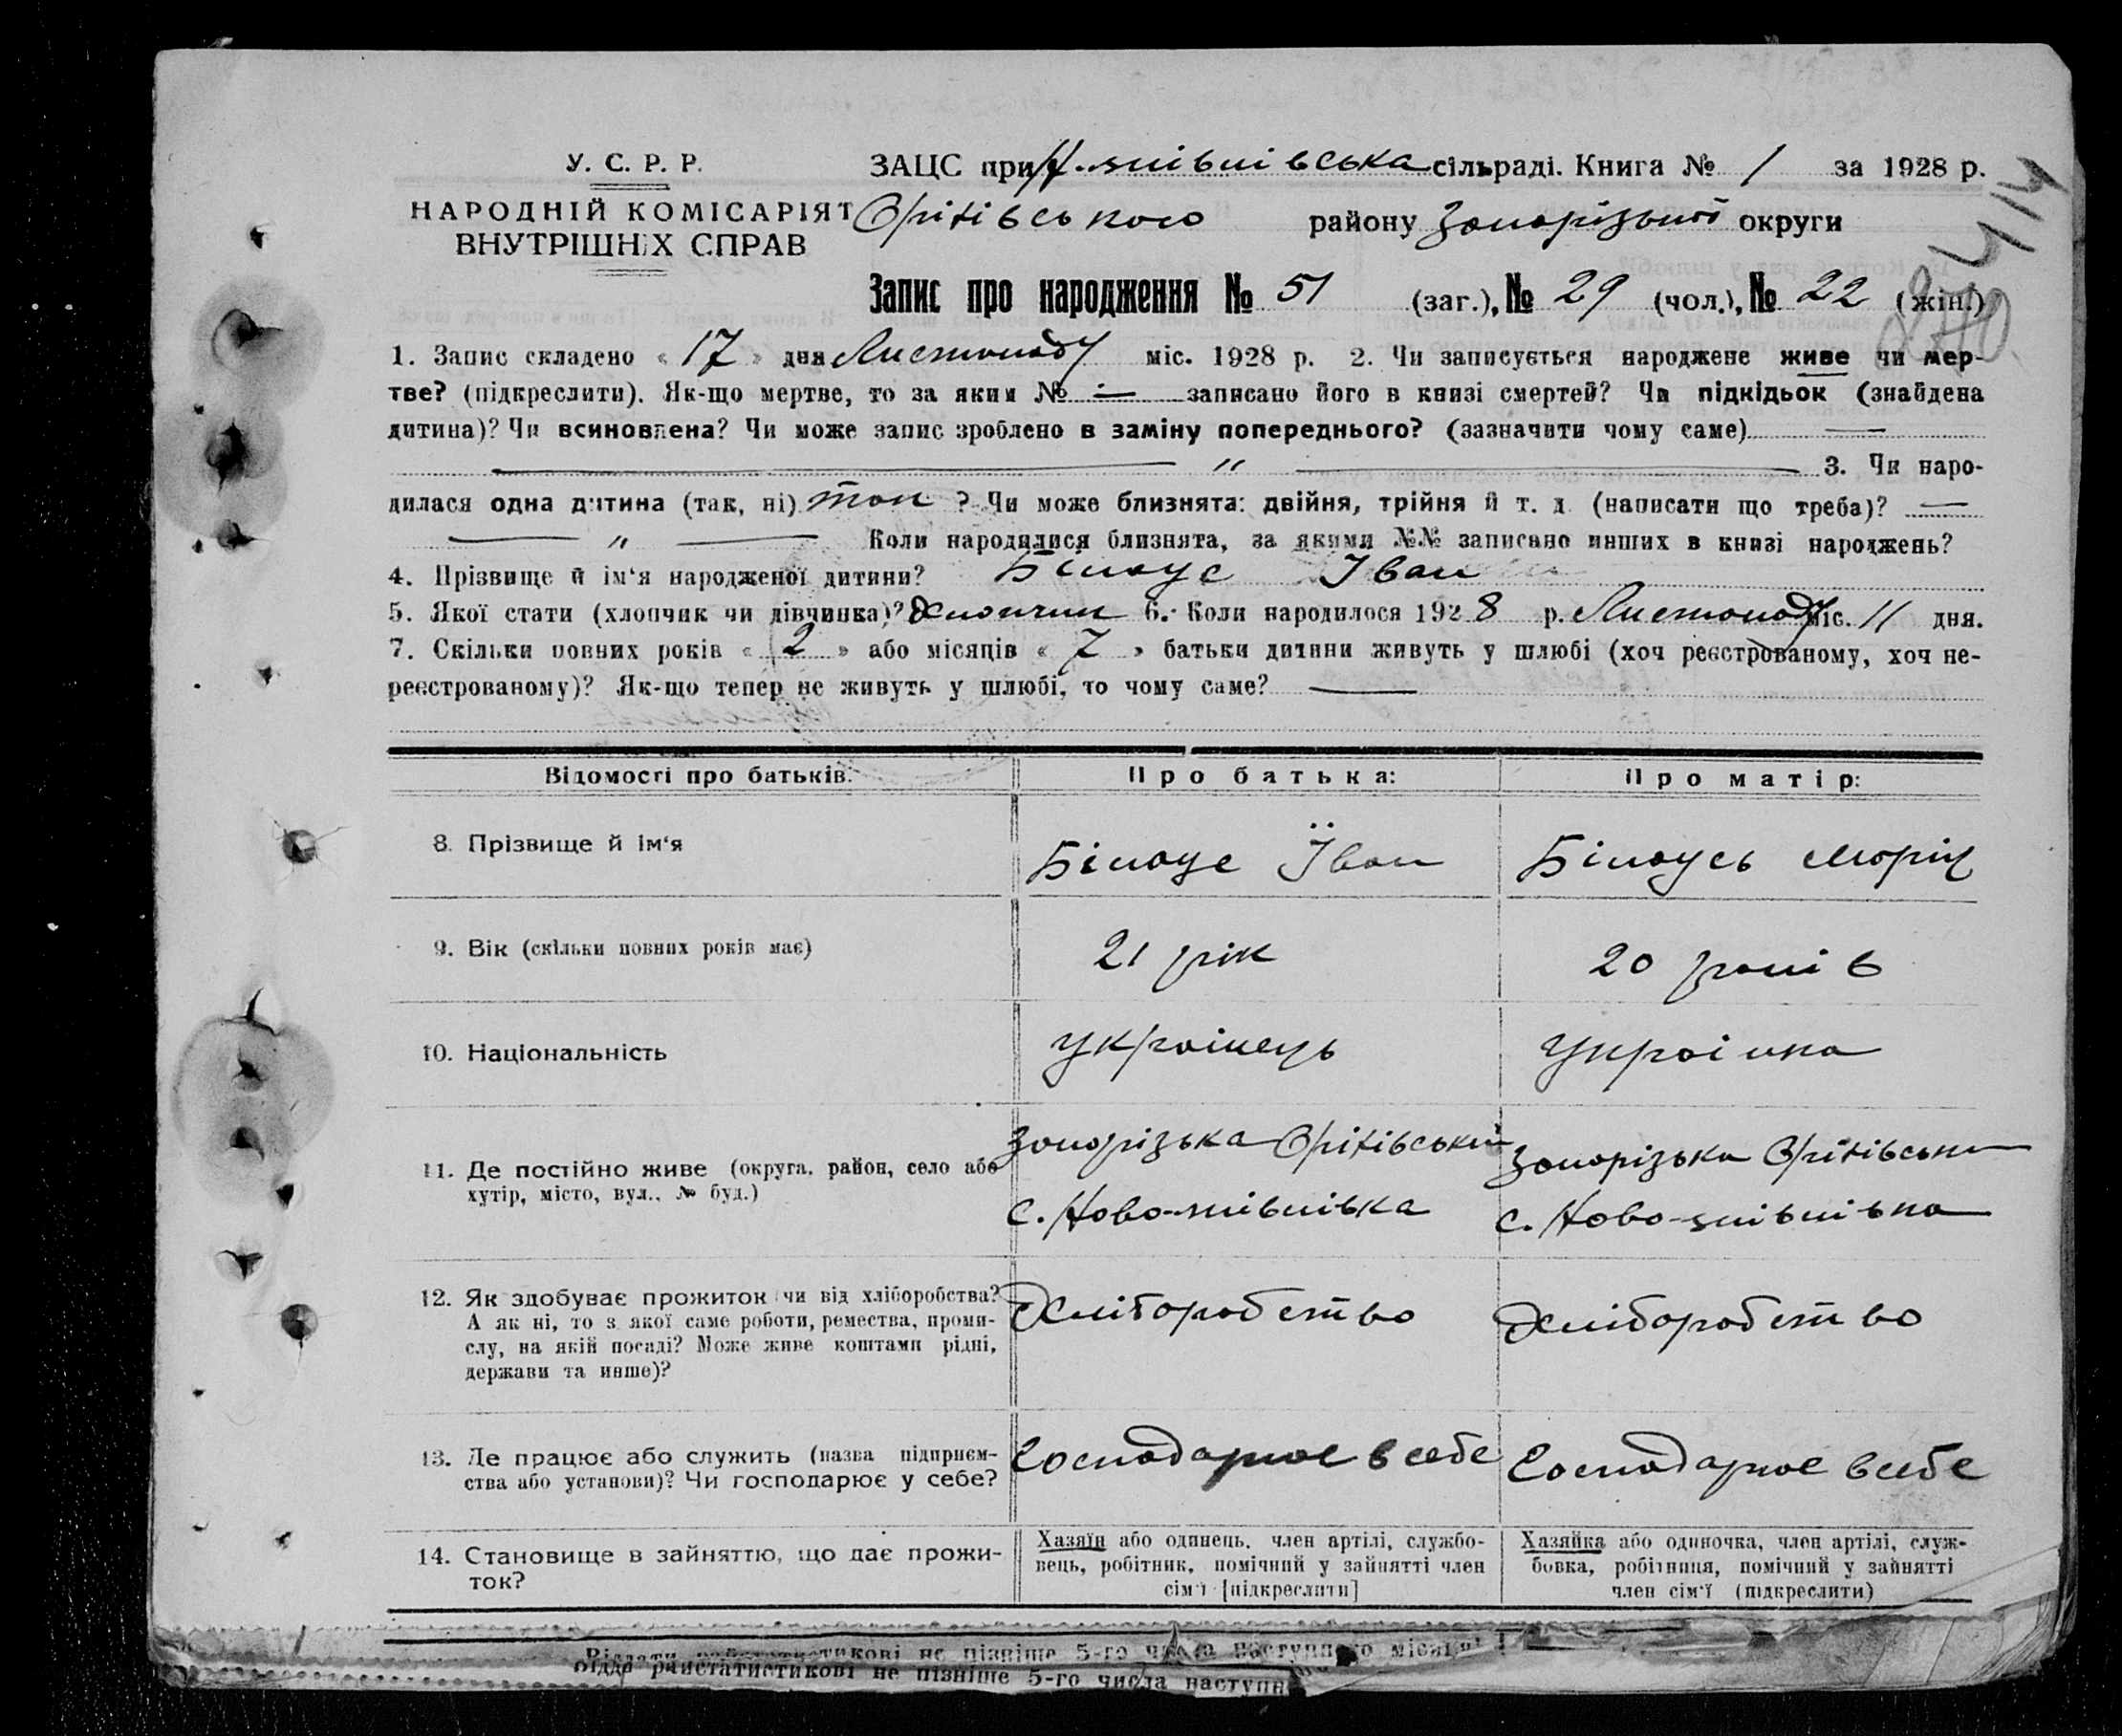 У. С. Р. Р.
НАРОДНІЙ КОМІСАРІЯТ
ВНУТРІШНІХ СПРАВ
ЗАЦС при сільраді. Книга № 1 за 1928 р.
району Запорізької округи
Запис про народження № 51 (заг.), № 29 (чол.), № 22 (жін.)
1. Запис складено « 17 » дня Листопаду міс. 1928 р. 2. Чи записується народжене живе чи мер-
тве? (підкреслити). Як-що мертве, то за яким № — записано його в книзі смертей? Чи підкідьок (знайдена
дитина)? Чи всиновлена? Чи може запис зроблено в заміну попереднього? (зазначити чому саме) —
— " — 3. Чи наро-
дилася одна дитина (так, ні) так ? Чи може близнята: двійня, трійня й т. д. (написати що треба)? —
— " — Коли народилися близнята, за якими №№ записано инших в книзі народжень?
4. Прізвище й ім'я народженої дитини? Білоус Іван
5. Якої стати (хлопчик чи дівчинка)? Хлопчик 6. Коли народилося 1928 р. Листопаду міс. 11 дня.
7. Скільки повних років « 2 » або місяців « 7 » батьки дитини живуть у шлюбі (хоч реєстрованому, хоч не-
реєстрованому)? Як-що тепер не живуть у шлюбі, то чому саме? —
Відомості про батьків: Про батька: Про матір:
8. Прізвище й ім'я
Білоус Їван Білоусь Марія
9. Вік (скільки повних років має)
21 рік 20 років
10. Національність
Українець Українка
11. Де постійно живе (округа, район, село або
хутір, місто, вул., № буд.)
Запорізька Запорізька
12. Як здобуває прожиток чи від хліборобства?
А як ні, то з якої саме роботи, ремества, проми-
слу, на якій посаді? Може живе коштами рідні,
держави та инше)?
Хліборобство Хліборобство
13. Де працює або служить (назва підприєм-
ства або установи)? Чи господарює у себе?
Господарює в себе Господарює в себе
14. Становище в зайняттю, що дає прожи-
ток?
Хазяїн або одинець, член артілі, службо-
вець, робітник, помічний у зайнятті член
сім'ї [підкреслити]
Хазяйка або одиночка, член артілі, служ-
бовка, робітниця, помічний у зайнятті
член сім'ї (підкреслити)
не пізніше 5-го числа наступного місяця!
не пізніше 5-го числа наступн